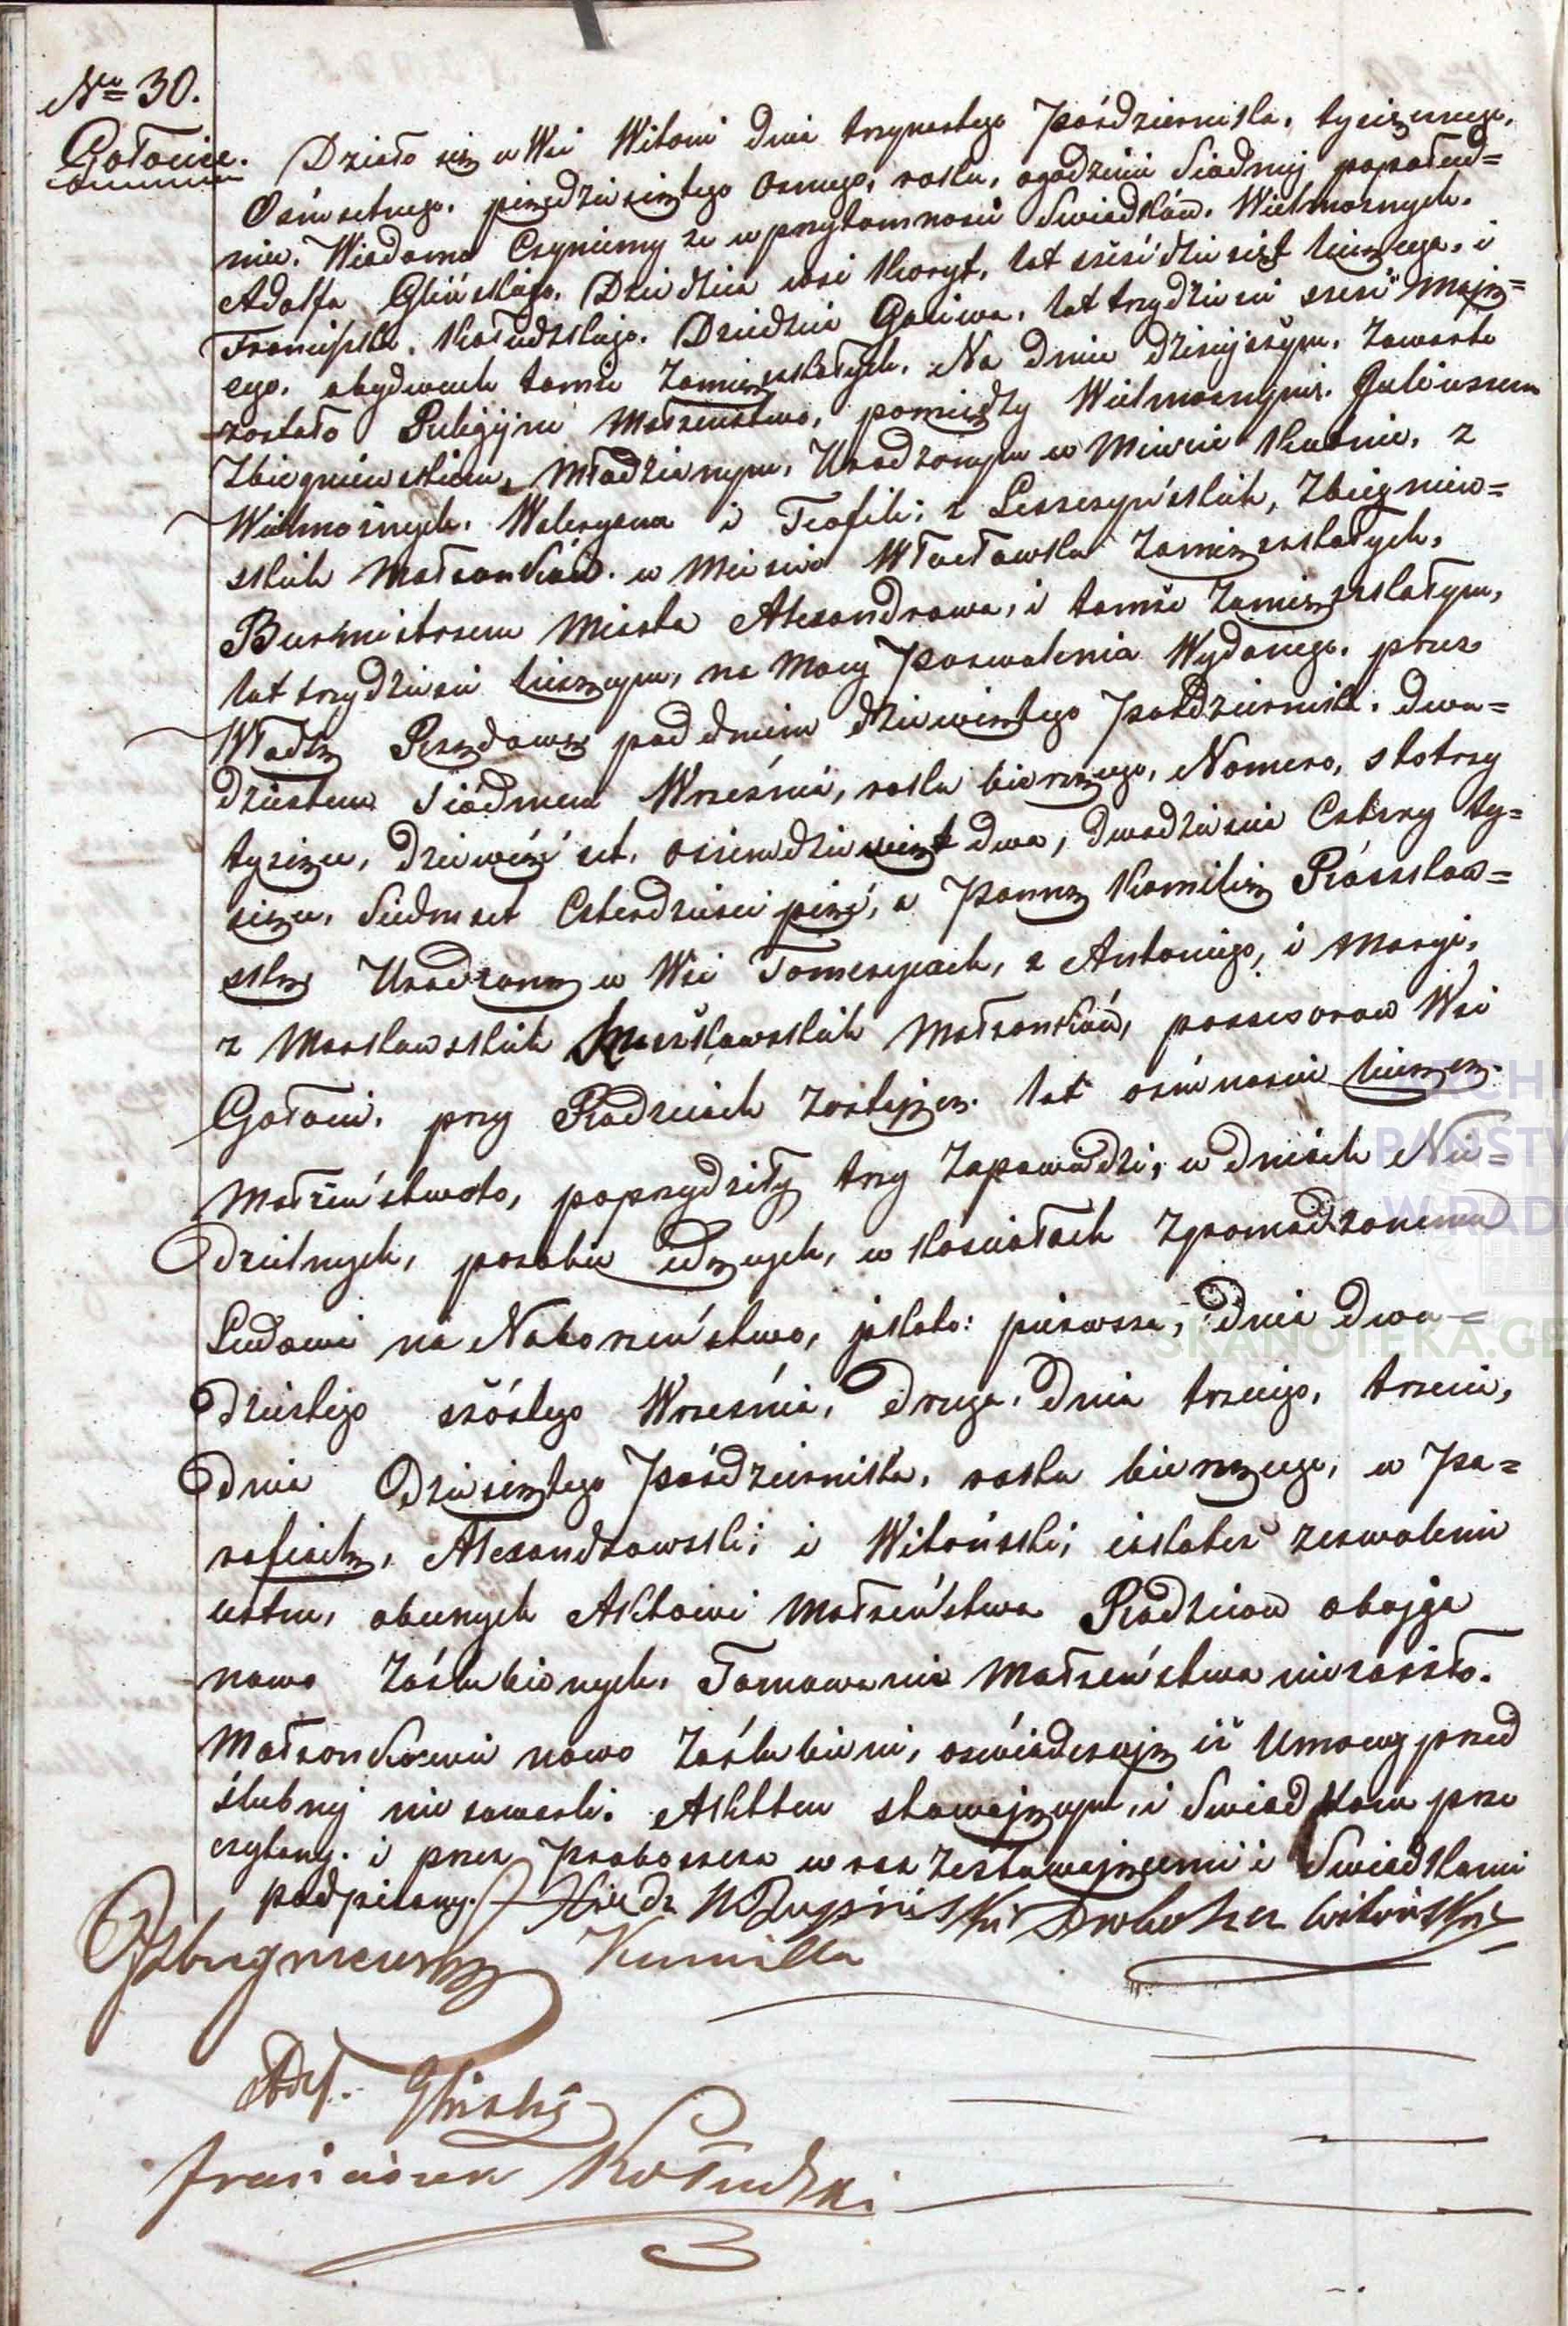 No 30.
Gołocice.
Działo się w Wsi Witoni dnia trzynastego Października, tysiącznego,
Ośmsetnego, pięćdziesiątego osmego, roku, ogodzinie Siódmej popołud=
niu. Wiadomo Czyniemy ze w przytomności Swiadków, Wielmożnych,
Adolfa Glińskiego, Dziedzica wsi Koryt, lat sześćdziesiąt liczącego, i
Franciszka Kołudzkiego, Dziedzica lat trzydzieści sześć mają=
cego, obydwuch tamże Zamieszkałych, Na dniu dzisiejszym, Zawarte
zostało Religijne Małżeństwo, pomiędzy Wielmożnym Juliuszem
Zbigniewskiem, Młodzianym, Urodzonym w Mieście Kutnie, z
Wielmożnych, Waleryana i Teofili, z Leszczyńskich, Zbigniew=
skich Małżonków, w Mieście Włocławku Zamieszkałych,
Burmistrzem Miasta Alexandrowa, i tamże Zamieszkałym,
lat trzydzieści liczącym, na Mocy Pozwolenia Wydanego, przez
Władzę Rządową pod dniem dziewiątego Październik. dwu=
dziestem Siódmem Wrześnie, roku bierzącego, Nomero, stotrzy
tysiące, dziewięć set, ośiemdziesiąt dwa, dwadzieścia Cztery ty=
siące, Siedmset Czterdzieści pięć, a Panną Kamillią
ską Urodzoną w Wsi Tomczycach, z Antoniego, i Maryi,
z Małżonków, possesorow Wsi
Gołocic, przy Rodzicach Zostającą, lat ośmnaście liczącą.
Małżeństwoto, poprzydziły trzy Zapowiedzi, w dniach Nie=
dzielnych, posobie idących, w kościołach Zgromadzonemu
Ludowi na Nabożeństwo, jakoto: pierwsza, dnia dwu=
dziestego szóstego Wrześnie, druga, dnia trzeciego, trzecia,
dnia dziesiątego Października, roku bierzącego, w Pa=
rafiach, Alexandrowski; i Witoński; iakoteż zezwolenie
ustne, obecnych Aktowi Małżeństwa Rodziców obojga
nowo Zaślubionych, Tamowanie Małżeństwa niezaszło.
Małżonkowie nowo Zaślubieni, oświadczają iż Umowy przed
ślubnej nie zawarli. Akt ten stawającym, i Swiadkom prze
czytany, i przez Proboszcza wraz Zestawającemi i Swiadkami
podpisany. Xiądz Proboszcz Witoński
Kamilla
Adolf. Gliński
Franciszek Kołudzki